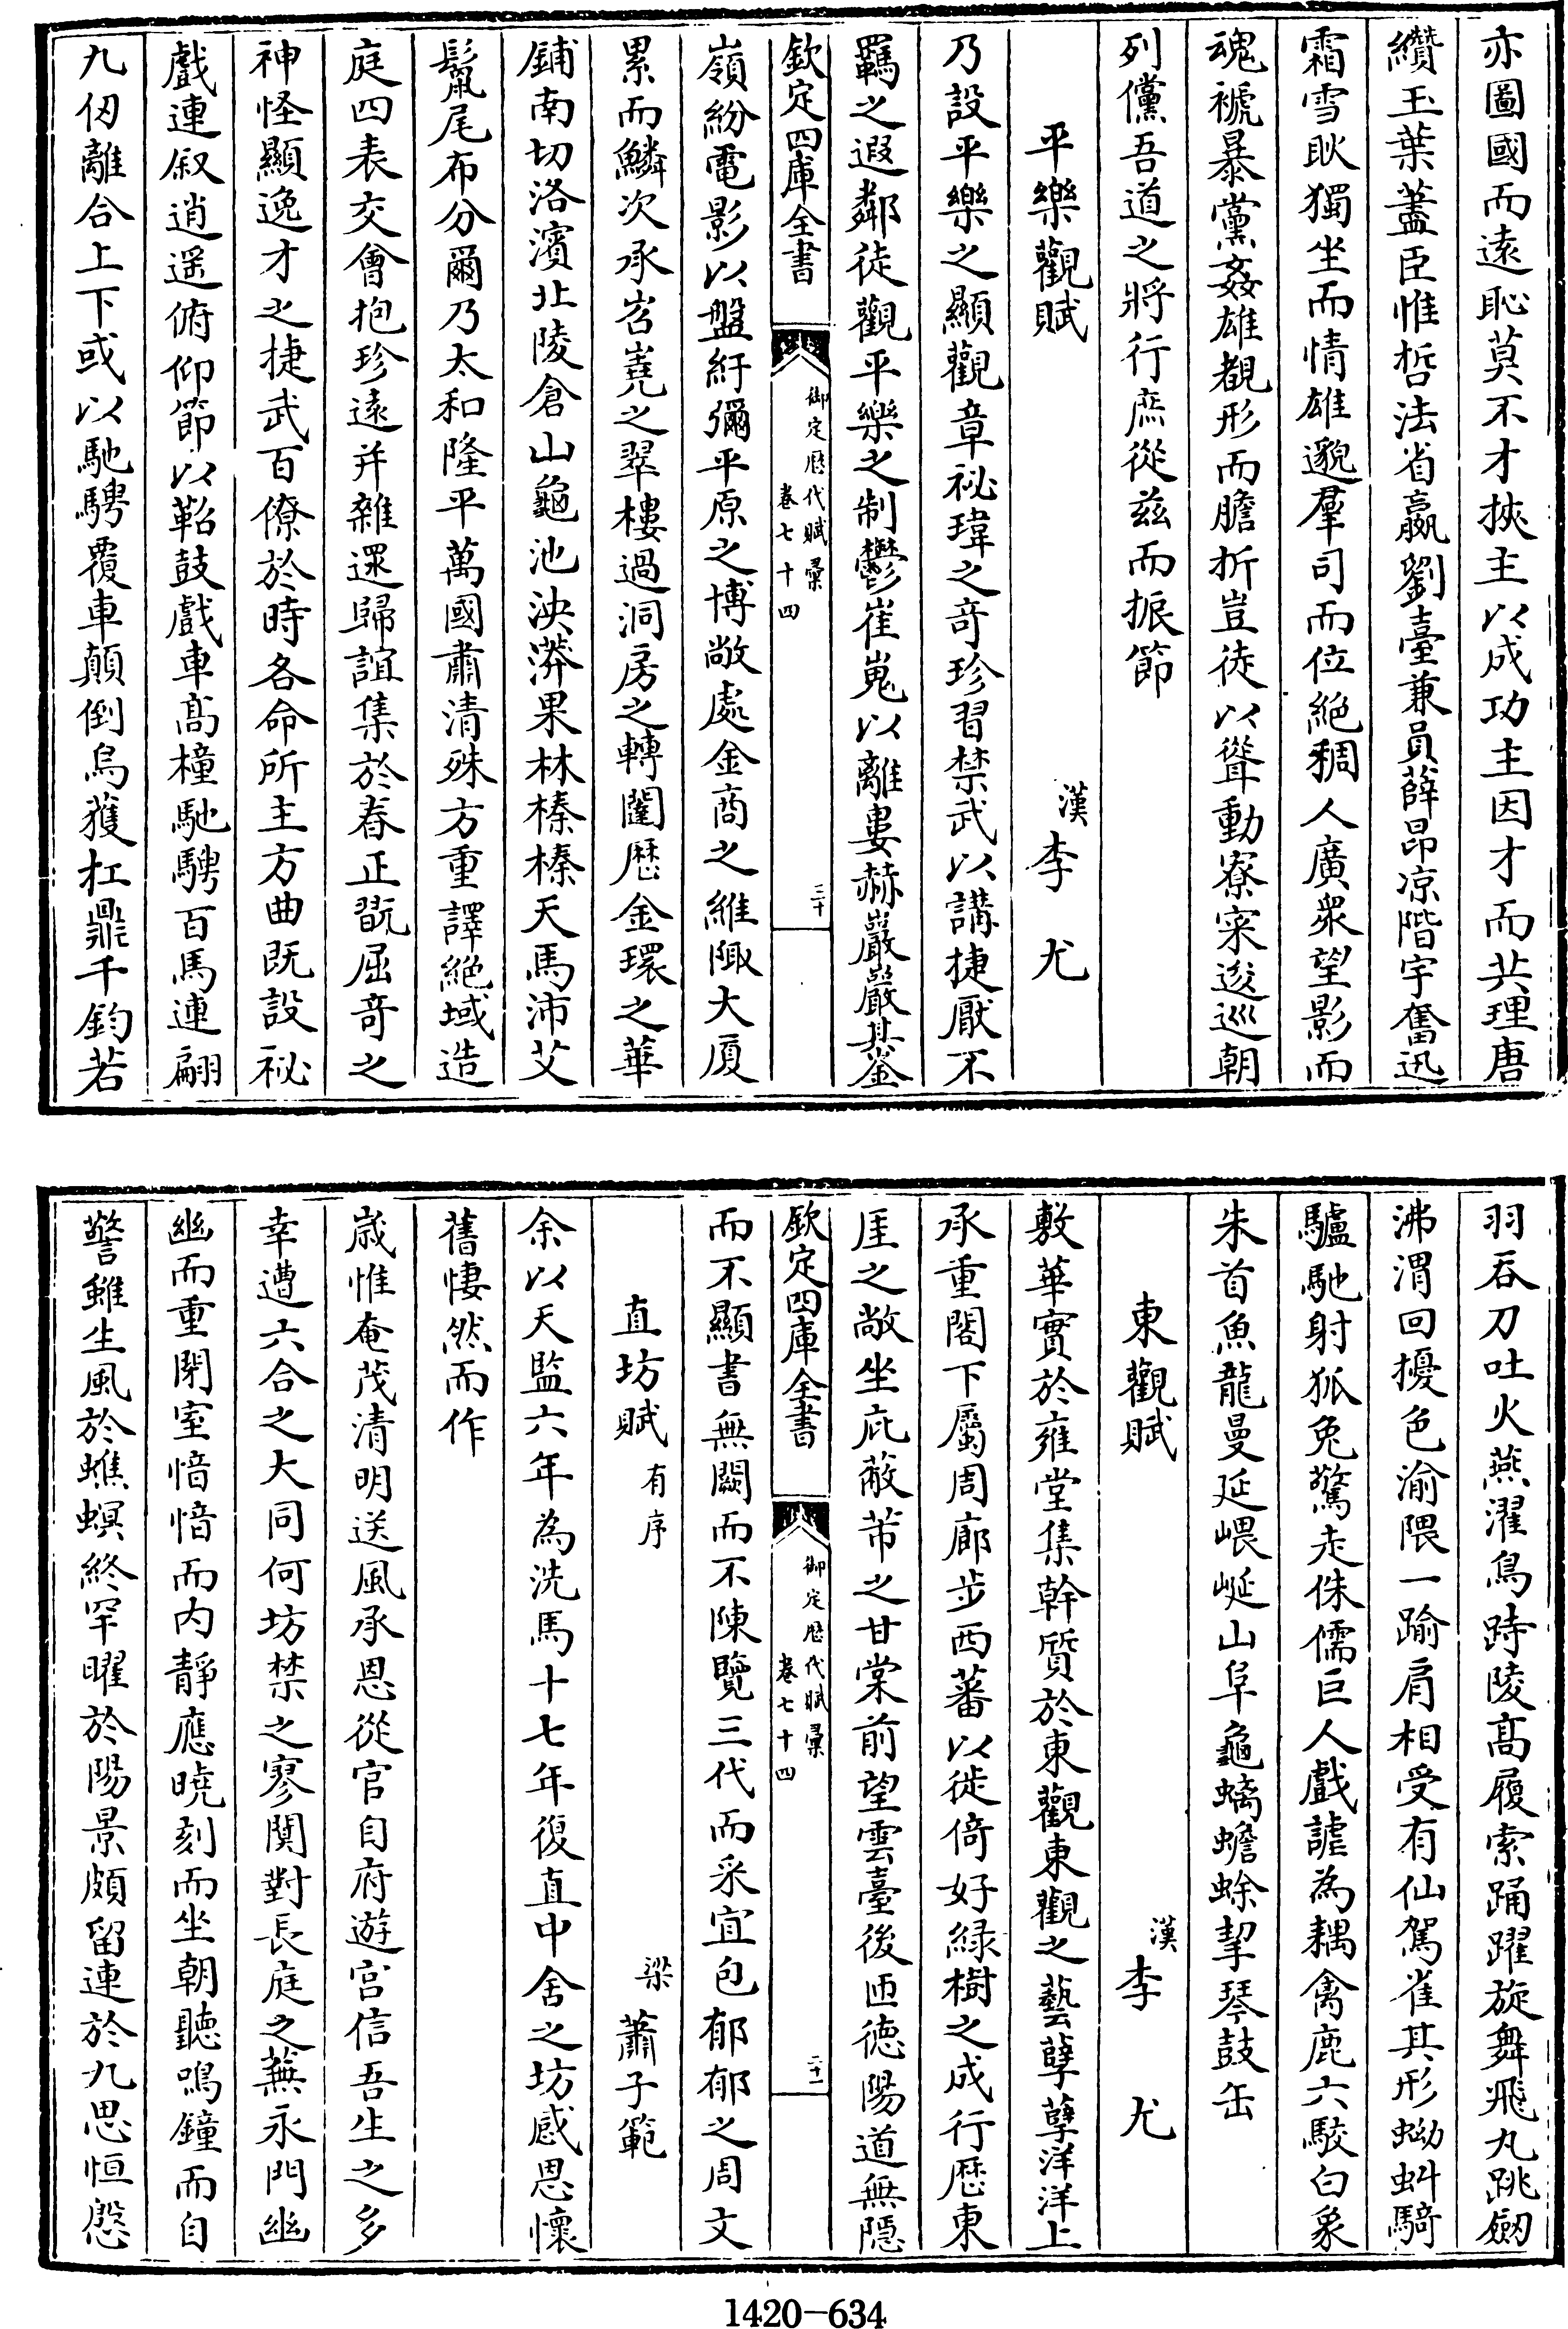 亦圖國而遠恥莫不才挾主以成功主因才而共理唐
纘玉葉藎臣惟哲法省嬴劉臺兼員薛昂凉階宇奮迅
霜雪耿獨坐而情雄邈羣司而位絕稠人廣衆望影而
魂褫暴黨姦雄覩形而膽折豈徒以聳動寮寀逡巡朝
列儻吾道之將行庶從兹而振節
平樂觀賦
漢李尤
乃設平樂之顯觀章祕瑋之奇珍習禁武以講捷厭不
羈之遐鄰徒觀平樂之制鬱崔嵬以離婁赫巖巖其崟
欽定四庫全書
御定歷代賦彙
卷七十四
三十
嶺紛電影以盤紆彌平原之博敞處金商之維陬大厦
累而鱗次承岧嶤之翠樓過洞房之轉闥歷金環之華
鋪南切洛濱北陵倉山龜池泱漭果林榛榛天馬沛艾
鬣尾布分爾乃太和隆平萬國肅清殊方重譯絕域造
庭四表交會抱珍遠并雜遝歸誼集於春正翫屈奇之
神怪顯逸才之捷武百僚於時各命所主方曲既設祕
戲連叙逍遥俯仰節以鞀鼓戲車髙橦馳騁百馬連翩
九仞離合上下或以馳騁覆車顛倒烏獲扛鼎千鈞若
羽吞刀吐火燕濯烏跱陵髙履索踊躍旋舞飛丸跳劒
沸渭回擾色渝隈一踰肩相受有仙駕雀其形蚴虯騎
驢馳射狐兔驚走侏儒巨人戲謔為耦禽鹿六駮白象
朱首魚龍曼延㟪㠌山阜龜螭蟾蜍挈琴鼓缶
東觀賦
漢李尤
敷華實於雍堂集幹質於東觀東觀之藝孽孽洋洋上
承重閣下屬周廊步西蕃以徙倚好緑樹之成行歷東
厓之敞坐庇蔽芾之甘棠前望雲臺後匝德陽道無隱
欽定四庫全書
御定歷代賦彙
卷七十四
三十一
而不顯書無闕而不陳覽三代而采宜包郁郁之周文
直坊賦有序
梁蕭子範
余以天監六年為洗馬十七年復直中舍之坊感思懷
舊悽然而作
嵗惟奄茂清明送風承恩從官自府遊宫信吾生之多
幸遭六合之大同何坊禁之寥闃對長庭之蕪永門幽
幽而重閉室愔愔而内靜應曉刻而坐朝聽鳴鐘而自
警雖生風於蟭螟終罕曜於陽景頗留連於九思恒慇
1420—634